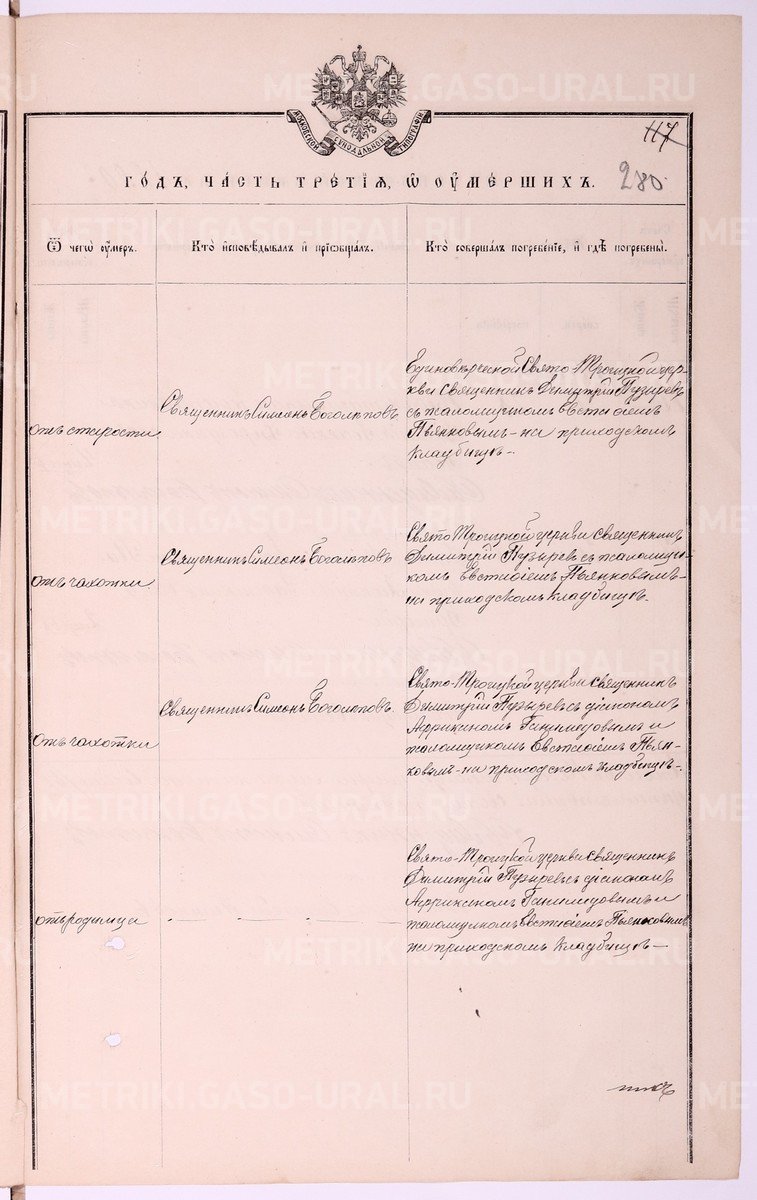 МОСКОВСКОЙ СУНОДАЛЬНОЙ ТИПОГРАФІИ
117
280.
ГОДЪ, ЧАСТЬ ТРЕТІЯ, Ѿ ОУМЕРШИХЪ.
Ѿ чегѡ оумеръ.
Кто исповѣдывалъ и пріобщалъ.
Кто совершалъ погребеніе, и гдѣ погребены.
отъ старости
Священникъ Симеонъ Боголѣповъ
Единовѣрческой Свято-Троицкой цер-
кви священникъ Димитрій Пузыревъ
съ псаломщикомъ Евстафіемъ
Пьянковымъ - на приходскомъ
кладбищѣ -
отъ чахотки.
Священникъ Симеонъ Боголѣповъ
Свято Троицкой церкви священникъ
Димитрій Пузыревъ съ псаломщи-
комъ Евстафіемъ Пьянковымъ -
на приходскомъ кладбищѣ.
отъ чахотки
Священникъ Симеонъ Боголѣповъ.
Свято-Троицкой церкви священникъ
Димитрій Пузыревъ съ діакономъ
Африканомъ Ганимедовымъ и
псаломщикомъ Евстафіемъ Пьян-
ковымъ - на приходскомъ кладбищѣ -.
отъ родимца
Свято-Троицкой церкви священникъ
Димитрій Пузыревъ съ діакономъ
Африканомъ Ганимедовымъ и
псаломщикомъ Евстафіемъ Пьянковымъ
на приходскомъ кладбищѣ -
METRIKI.GASO-URAL.RU